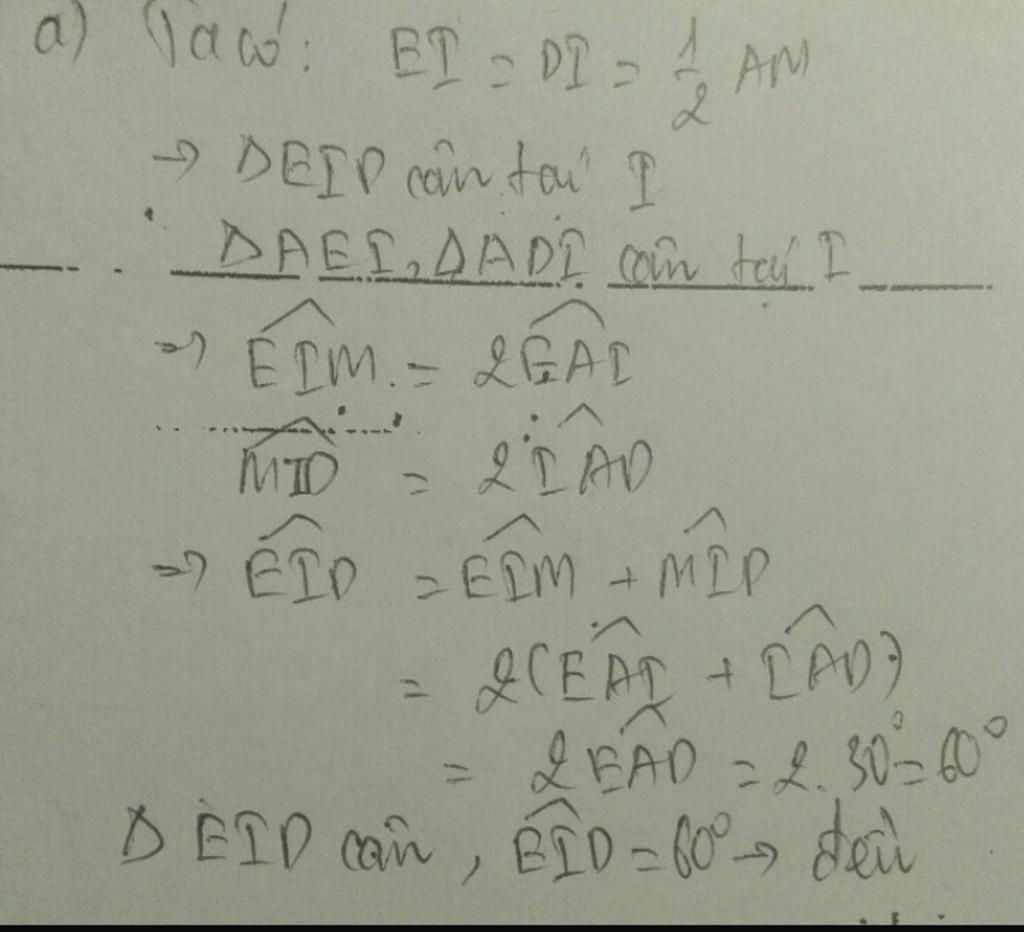 a) Ta có: EI = DI = 1/2 AM
→ ΔEID cân tại I
ΔAEI, ΔADI cân tại I
⇒ \widehat{EIM} = 2\widehat{EAI}
\widehat{MID} = 2\widehat{IAD}
⇒ \widehat{EID} = \widehat{EIM} + \widehat{MID}
= 2(\widehat{EAI} + \widehat{IAD})
= 2\widehat{EAD} = 2.30° = 60°
ΔEID cân, \widehat{EID} = 60° → đều